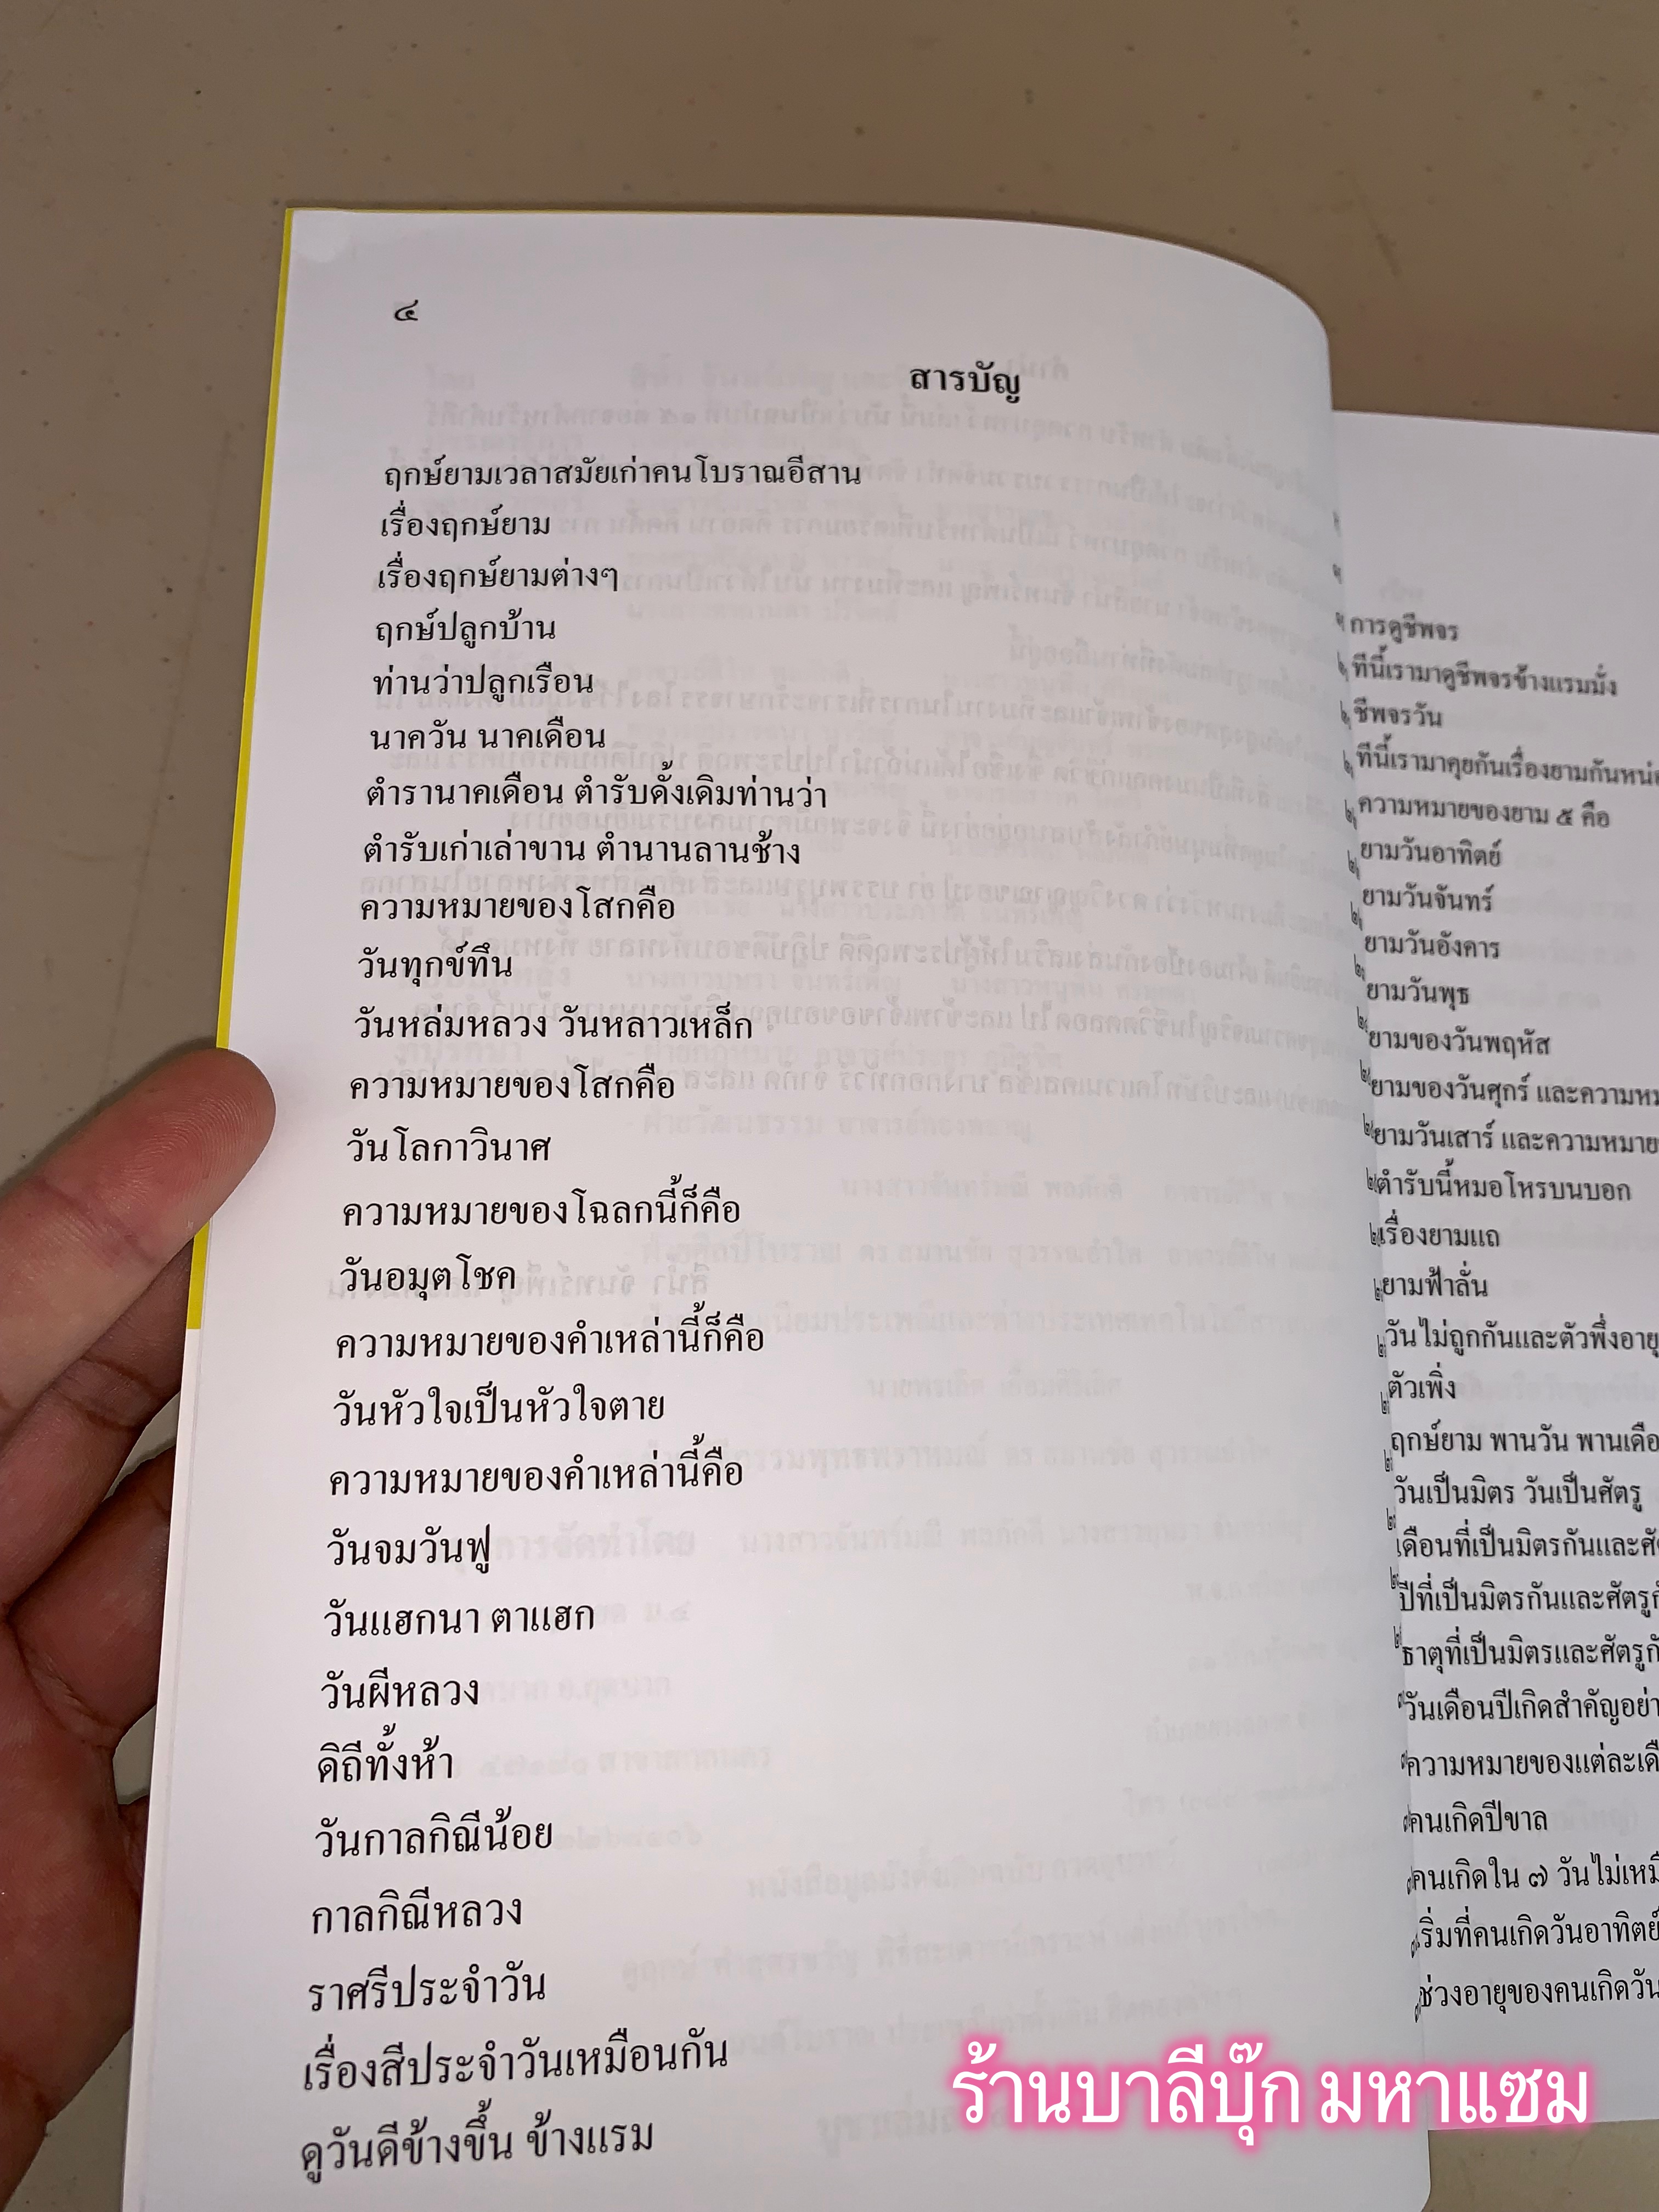 ๔
สารบัญ
ฤกษ์ยามเวลาสมัยเก่าคนโบราณอีสาน
เรื่องฤกษ์ยาม
เรื่องฤกษ์ยามต่างๆ
ฤกษ์ปลูกบ้าน
ท่านว่าปลูกเรือน
นาควัน นาคเดือน
ตำรานาคเดือน ตำรับดั้งเดิมท่านว่า
ตำรับเก่าเล่าขาน ตำนานลานช้าง
ความหมายของโสกคือ
วันทุกข์ทึน
วันหล่มหลวง วันหลาวเหล็ก
ความหมายของโสกคือ
วันโลกาวินาศ
ความหมายของโฉลกนี้ก็คือ
วันอมุตโชค
ความหมายของคำเหล่านี้ก็คือ
วันหัวใจเป็นหัวใจตาย
ความหมายของคำเหล่านี้คือ
วันจมวันฟู
วันแฮกนา ตาแฮก
วันผีหลวง
ดิถีทั้งห้า
วันกาลกิณีน้อย
กาลกิณีหลวง
ราศรีประจำวัน
เรื่องสีประจำวันเหมือนกัน
ดูวันดีข้างขึ้น ข้างแรม
การดูชีพจร
ทีนี้เรามาดูชีพจรข้างแรมมั่ง
ชีพจรวัน
ทีนี้เรามาคุยกันเรื่องยามกันหน่
ความหมายของยาม ๕ คือ
ยามวันอาทิตย์
ยามวันจันทร์
ยามวันอังคาร
ยามวันพุธ
ยามของวันพฤหัส
ยามของวันศุกร์ และความหม
ยามวันเสาร์ และความหมาย
ตำรับนี้หมอโหรบนบอก
เรื่องยามแถ
ยามฟ้าลั่น
วันไม่ถูกกันและตัวพึ่งอายุ
ตัวเพิ่ง
ฤกษ์ยาม พานวัน พานเดือ
วันเป็นมิตร วันเป็นศัตรู
เดือนที่เป็นมิตรกันและศั
ปีที่เป็นมิตรกันและศัตรูกั
ธาตุที่เป็นมิตรและศัตรูกั
วันเดือนปีเกิดสำคัญอย่า
ความหมายของแต่ละเดื
คนเกิดปีขาล
คนเกิดใน ๗ วันไม่เหมื
ริ่มที่คนเกิดวันอาทิตย์
ช่วงอายุของคนเกิดวัน
ร้านบาลีบุ๊ก มหาแซม